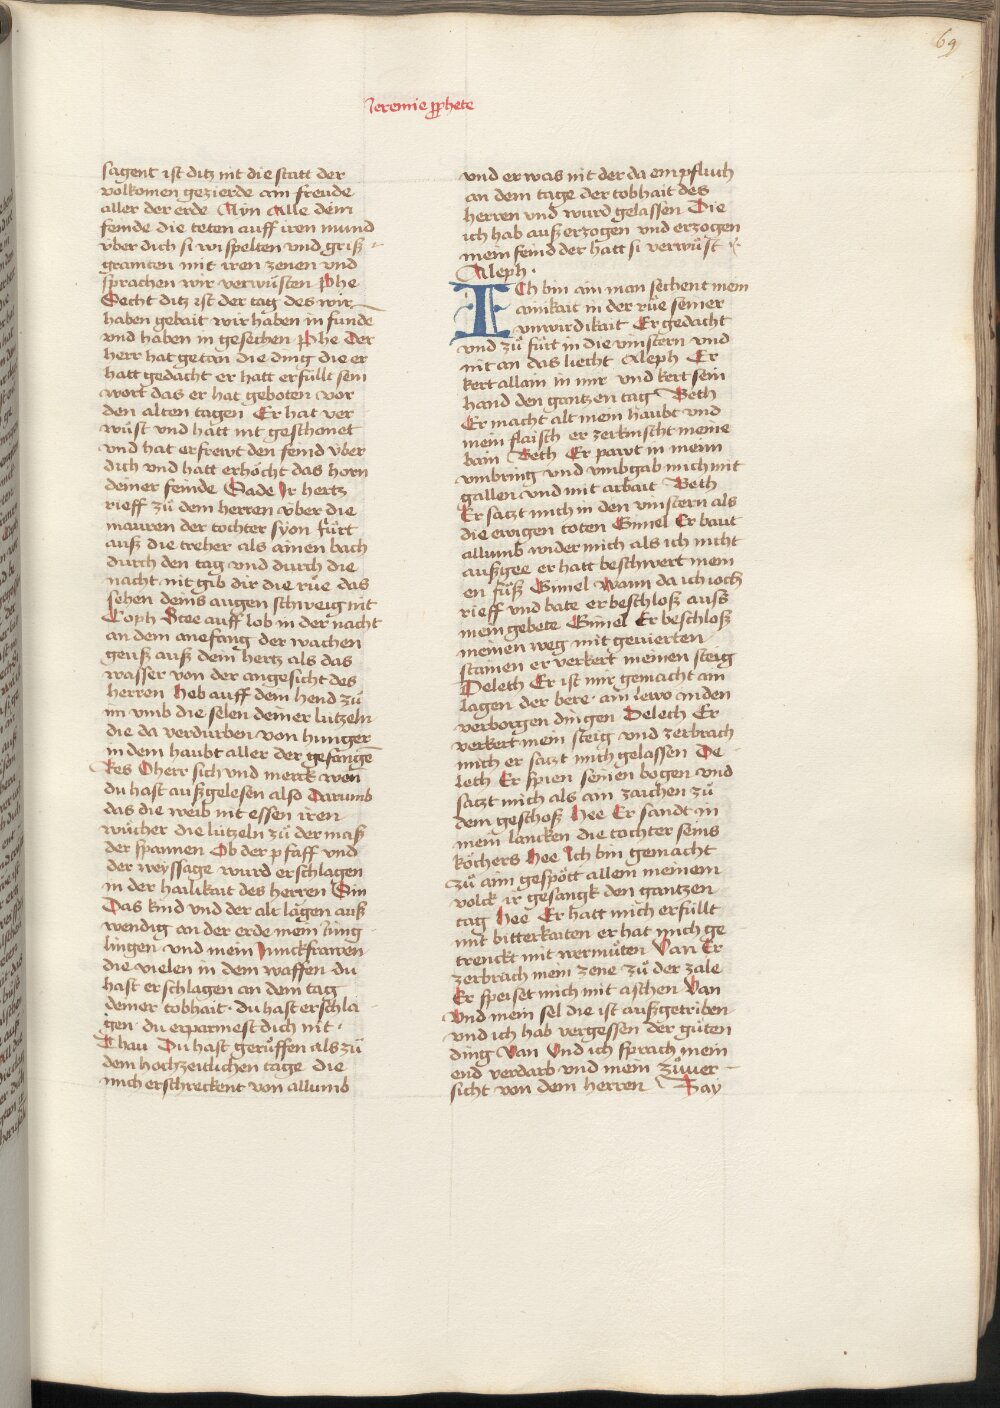 69
Jeremie pphete
sagent ist ditz nit die statt der
volkomen gezierde ain freude
aller der erde Ayn Alle dein
feinde die teten auff iren mund
vber dich si wispelten vnd griß
gramten mit iren zenen vnd
sprachen wir verwüsten Phe
Secht ditz ist der tag des wir
haben gebait wir haben in funde
vnd haben in gesechen Phe Der
herr hat getan die ding die er
hatt gedacht er hatt erfüllt sein
wort das er hat geboten vor
den alten tagen Er hat ver
wüst vnd hatt nit geschonet
vnd hat erfrewt den feind vber
dich vnd hatt erhöcht das horn
deiner feinde Sade Ir hertz
rieff zů dem herren vber die
mauren der tochter syon fürt
auß die treher als ainen bach
durch den tag vnd durch die
nacht nit gib dir die růe das
sehen deins augen schweig nit
Coph Stee auff lob in der nacht
an dem anefang der wachen
geuß auß dein hertz als das
wasser von der angesicht des
herren Heb auff dein hend zů
im vmb die selen deiner lützeln
die da verdurben von hunger
in dem haubt aller der gefangē
Res O here sich vnd merck wen
du hast außgelesen also Darumb
das die weib nit essen iren
wücher die lützeln zů der maß
der spannen Ob der pfaff vnd
der weyssage wurd erschlagen
in der hailikait des herren Sin
Das kind vnd der alt lägen auß
wendig an der erde mein iüng
lingen vnd mein Junckfrawen
die vielen in dem waffen du
hast erschlagen an dem tag
deiner tobhait · du hast erschla
gen · du erparmest dich nit ·
Thau Du hast gerůffen als zů
dem hochzeitlichen tage die
mich erschreckent von allumb
vnd er was nit der da empfluch
an dem tage der tobhait des
herren vnd wurd gelassen Die
ich hab auß erzogen vnd erzogen
mein feind der hatt si verwüst
Aleph ·
ICh bin ain man sechent mein
armkait in der růe seiner
vnwirdikait Er gedacht
vnd zů fürt in die vinstern vnd
nit an das liecht Aleph Er
kert allain in mir vnd kert sein
hand den gantzen tag Beth
Er macht alt mein haubt vnd
mein flaisch er zerknischt meine
bain Beth Er pawt in meim
vmbring vnd vmbgab mich mit
gallen vnd mit arbait Beth
Er satzt mich in den vinstern als
die ewigen toten Gimel Er baut
allumb wider mich als ich nicht
außgee er hatt beschwert mein
en fůß Gimel Wann da ich ioch
rieff vnd bate er beschloß auss
mein gebete Gimel Er beschloß
meinen weg mit gevierten
stainen er verkert meinen steig
Deleth Er ist mir gemacht ain
lagen der bere · ain lewo in den
verborgen dingen Delech Er
verkert mein steig vnd zerbrach
mich er satzt mich gelassen De
lech Er spien seinen bogen vnd
satzt mich als ain zaichen zů
dem geschoß Hee Er sandt in
mein lancken die tochter seins
köchers Hee Ich bin gemacht
zů aim gespött allem meinem
volck ir gesangk den gantzen
tag Hee Er hatt mich erfüllt
mit bitterkaiten er hat mich ge
trenckt mit wermůten Van Er
zerbrach mein zene zů der zale
Er speiset mich mit aschen Van
Vnd mein sel die ist außgetriben
vnd ich hab vergessen der güten
ding Van Vnd ich sprach mein
end verdarb vnd mein zůuer
sicht von dem herren Zay